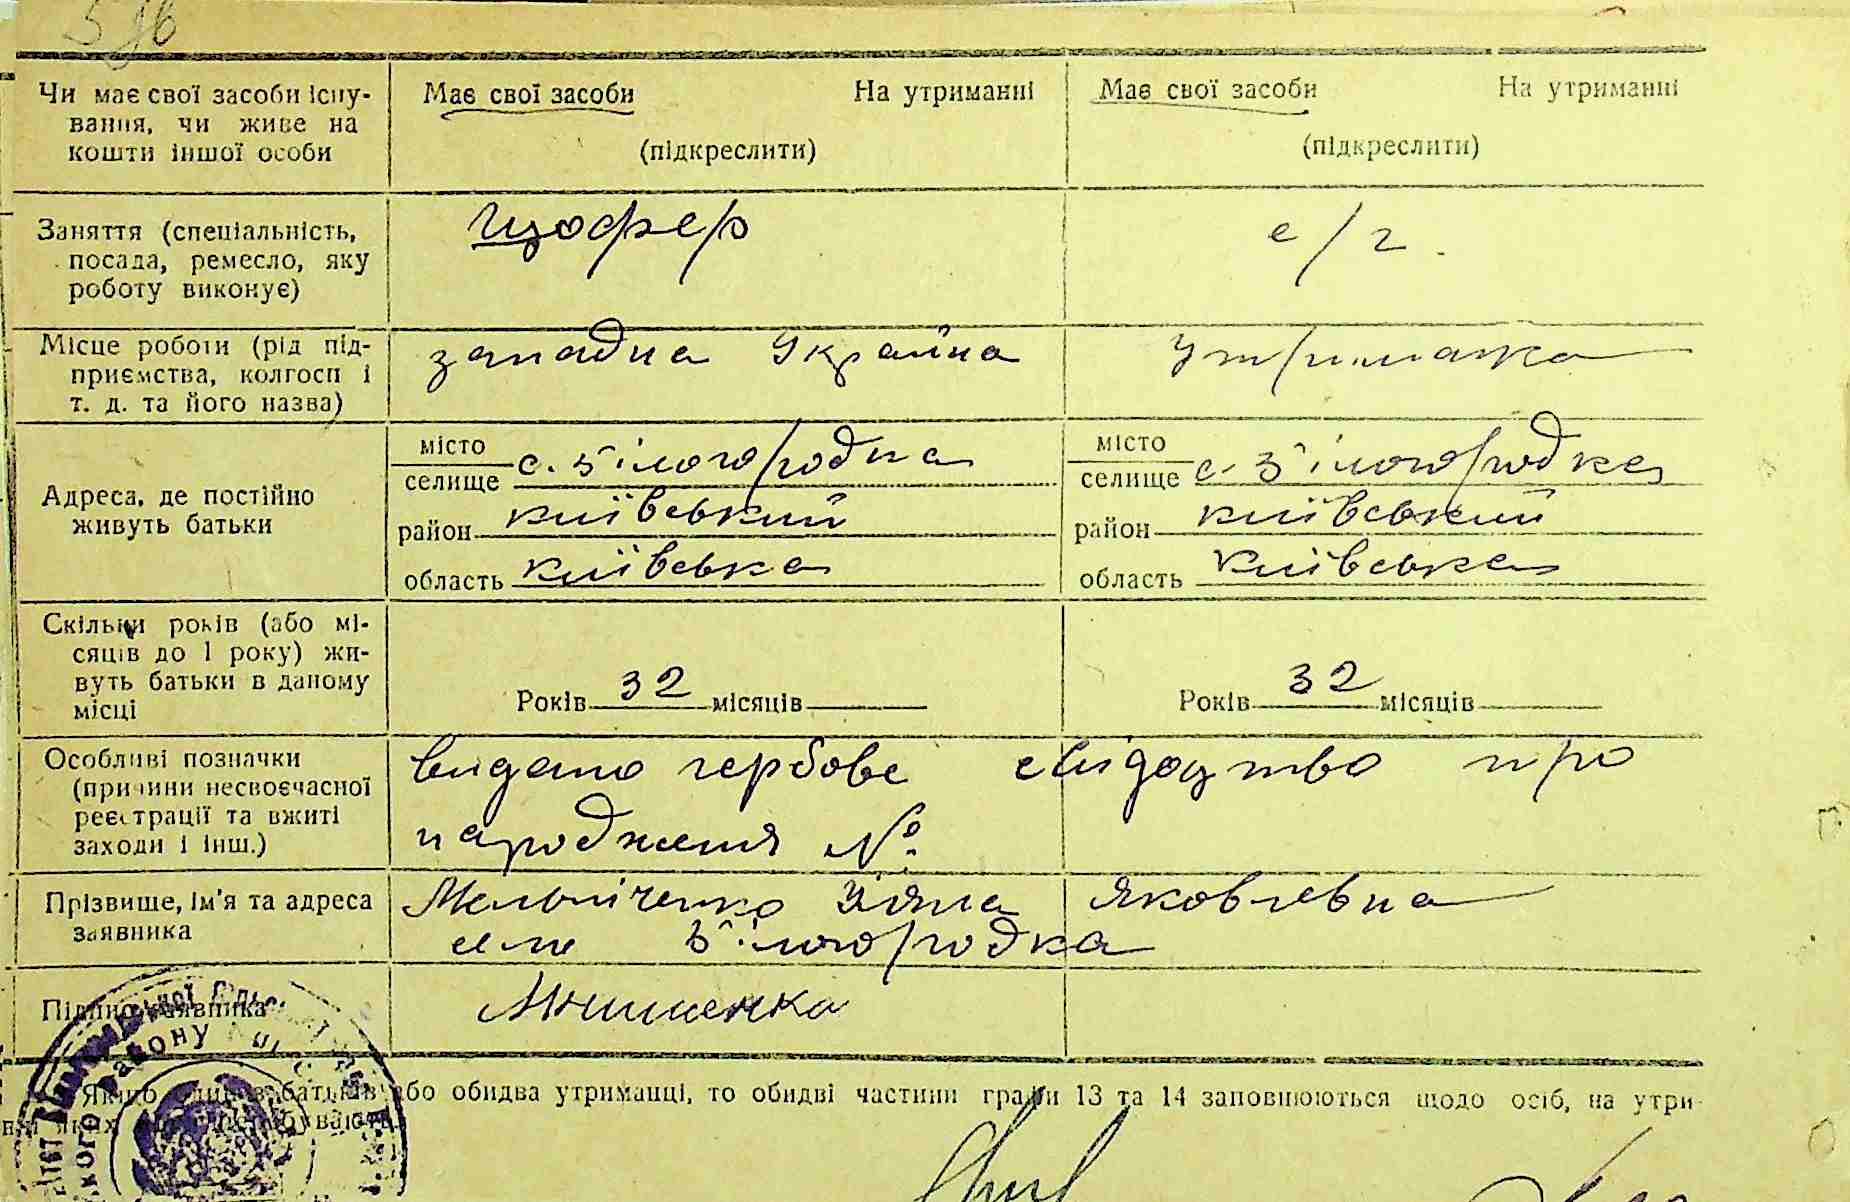 Чи має свої засоби існу-
вання, чи живе на
кошти іншої особи
Має свої засоби На утриманні
(підкреслити)
Має свої засоби На утриманні
(підкреслити)
Заняття (спеціальність,
посада, ремесло, яку
роботу виконує)
шофер
с/г.
Місце роботи (рід під-
приємства, колгосп і
т. д. та його назва)
западна Україна
Утриманка
Адреса, де постійно
живуть батьки
місто
селище с. Білогородка
район київський
область київська
місто
селище с. Білогородка
район київський
область київська
Скільки років (або мі-
сяців до 1 року) жи-
вуть батьки в даному
місці
Років 32 місяців
Років 32 місяців
Особливі позначки
(причини несвоєчасної
реєстрації та вжиті
заходи і інш.)
видано гербове свідоцтво про
народження №
Прізвище, ім'я та адреса
заявника
Яковлевна
село Білогородка
Підпис заявника
Якщо один з батьків або обидва утриманці, то обидві частини графи 13 та 14 заповнюються щодо осіб, на утри-